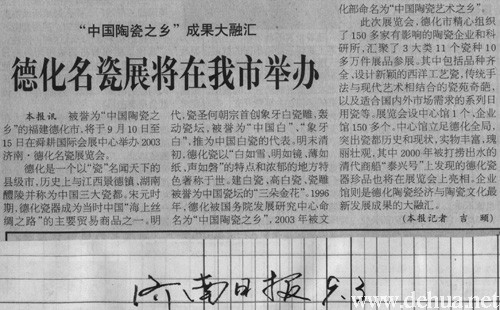 “中国陶瓷之乡”成果大融汇
德化名瓷展将在我市举办
本报讯 被誉为“中国陶瓷之
乡”的福建德化市,将于9月10日至
15日在舜耕国际会展中心举办2003
济南·德化名瓷展览会。
德化是一个以“瓷”名闻天下的
县级市,历史上与江西景德镇,湖南
醴陵并称为中国三大瓷都。宋元时
期,德化瓷器成为当时中国“海上丝
绸之路”的主要贸易商品之一。明
代,瓷圣何朝宗首创象牙白瓷雕,轰
动瓷坛,被誉为“中国白”、“象牙
白”,推为中国白瓷的代表。明末清
初,德化瓷以“白如雪,明如镜,薄如
纸,声如磬”的特点和浓郁的地方特
色著称于世。建白瓷、高白瓷、瓷雕
被誉为中国瓷坛的“三朵金花”。1996
年,德化被国务院发展研究中心命
名为“中国陶瓷之乡”,2003年被文
化部命名为“中国陶瓷艺术之乡”。
此次展览会,德化市精心组织
了150多家有影响的陶瓷企业和科
研所,汇聚了3大类11个瓷种10
多万件展品参展。其中包括品种齐
全、设计新颖的西洋工艺瓷,传统手
法与现代艺术相结合的瓷苑奇葩,
以及适合国内外市场需求的系列日
用瓷等。展览会设中心馆1个,企业
馆150多个。中心馆立足德化全局,
突出瓷都历史和现状,实物丰富,瑰
丽壮观,其中2000年被打捞出水的
清代商船“泰兴号”上发现的德化瓷
器珍品也将在展览会上亮相;企业
馆则是德化陶瓷经济与陶瓷文化最
新发展成果的大融汇。
(本报记者 吉 颐)
济南日报 9.3
www.dehua.net